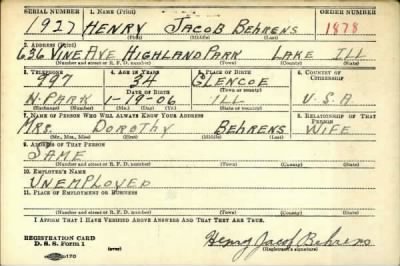 SERIAL NUMBER 1. NAME (Print) ORDER NUMBER
1927 HENRY JACOB BEHRENS 1878
(First) (Middle) (Last)
2. ADDRESS (Print)
636 VINE AVE HIGHLAND PARK LAKE ILL
(Number and street or R. F. D. number) (Town) (County) (State)
3. TELEPHONE 4. AGE IN YEARS 5. PLACE OF BIRTH 6. COUNTRY OF CITIZENSHIP
997 34 GLENCOE
DATE OF BIRTH (Town or county)
H. PARK 1-19-06 ILL U.S.A.
(Exchange) (Number) (Mo.) (Day) (Yr.) (State or country)
7. NAME OF PERSON WHO WILL ALWAYS KNOW YOUR ADDRESS 8. RELATIONSHIP OF THAT PERSON
MRS. DOROTHY BEHRENS WIFE
(Mr., Mrs., Miss) (First) (Middle) (Last)
9. ADDRESS OF THAT PERSON
SAME
(Number and street or R. F. D. number) (Town) (County) (State)
10. EMPLOYER'S NAME
UNEMPLOYED
11. PLACE OF EMPLOYMENT OR BUSINESS
(Number and street or R. F. D. number) (Town) (County) (State)
I AFFIRM THAT I HAVE VERIFIED ABOVE ANSWERS AND THAT THEY ARE TRUE.
REGISTRATION CARD
D. S. S. Form 1 (over) Henry Jacob Behrens
(Registrant's signature)